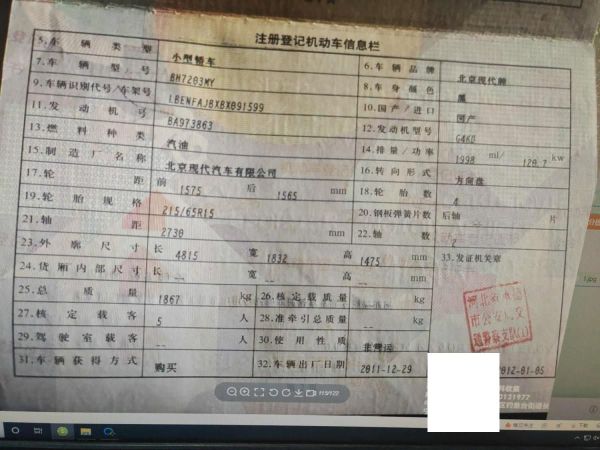 注册登记机动车信息栏
5.车辆类型 小型轿车 6.车辆品牌 北京现代牌
7.车辆型号 BH7203MY 8.车身颜色 黑
9.车辆识别代号/车架号 LBENFAJBXBX091599 10.国产/进口 国产
11.发动机号 BA973863 12.发动机型号 G4KD
13.燃料种类 汽油 14.排量/功率 1998 ml/ 120.7 kw
15.制造厂名称 北京现代汽车有限公司 16.转向形式 方向盘
17.轮距 前 1575 后 1565 mm 18.轮胎数 4
19.轮胎规格 215/65R15 20.钢板弹簧片数 后轴 片
21.轴距 2730 mm 22.轴数 2
23.外廓尺寸 长 4815 宽 1832 高 1475 mm 33.发证机关章
24.货厢内部尺寸 长 -- 宽 -- 高 -- mm
25.总质量 1867 kg 26.核定载质量 -- kg
27.核定载客 5 人 28.准牵引总质量 -- kg
29.驾驶室载客 -- 人 30.使用性质 非营运
31.车辆获得方式 购买 32.车辆出厂日期 2011-12-29 2012-01-05
河北省承德
市公安局交
通警察支队
113/122
1.jpg